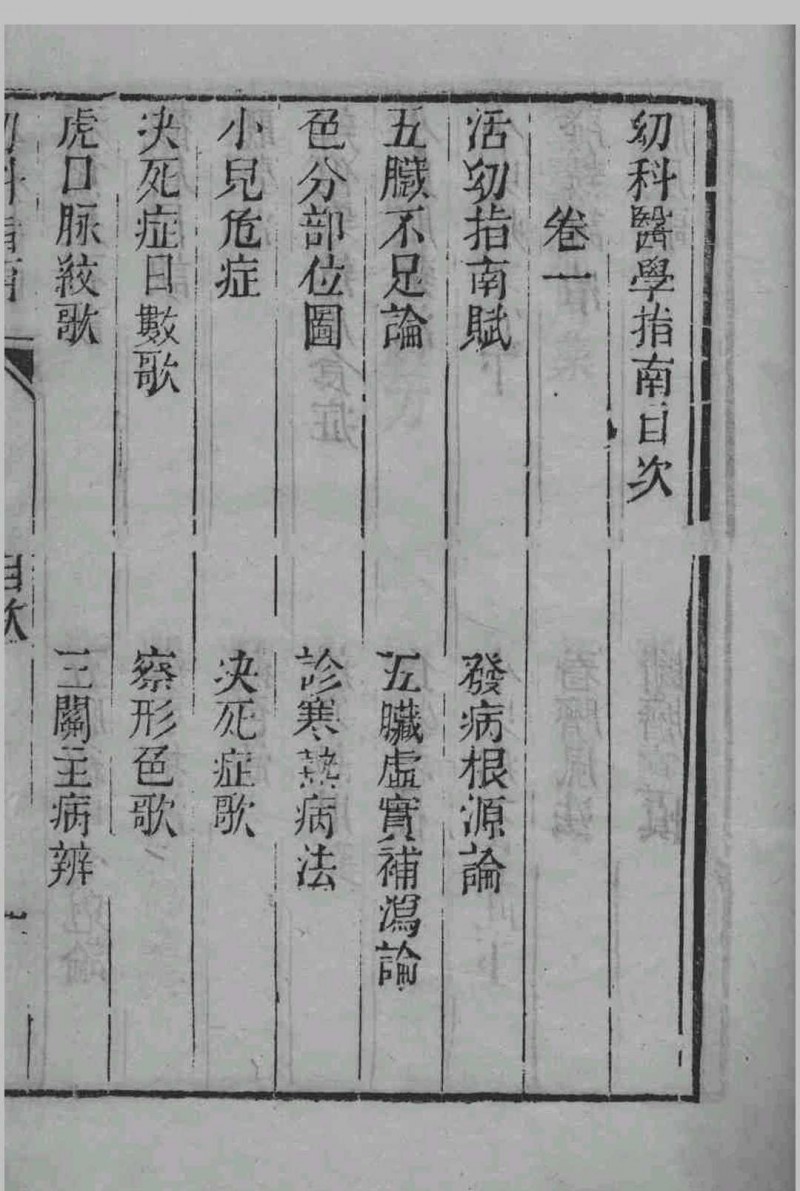 幼科醫學指南目次
卷一
活幼指南賦 發病根源論
五臟不足論 五臟虛實補瀉論
色分部位圖 診寒熱病法
小兒危症 决死症歌
决死症日數歌 察形色歌
虎口脉紋歌 三關主病辨
目次